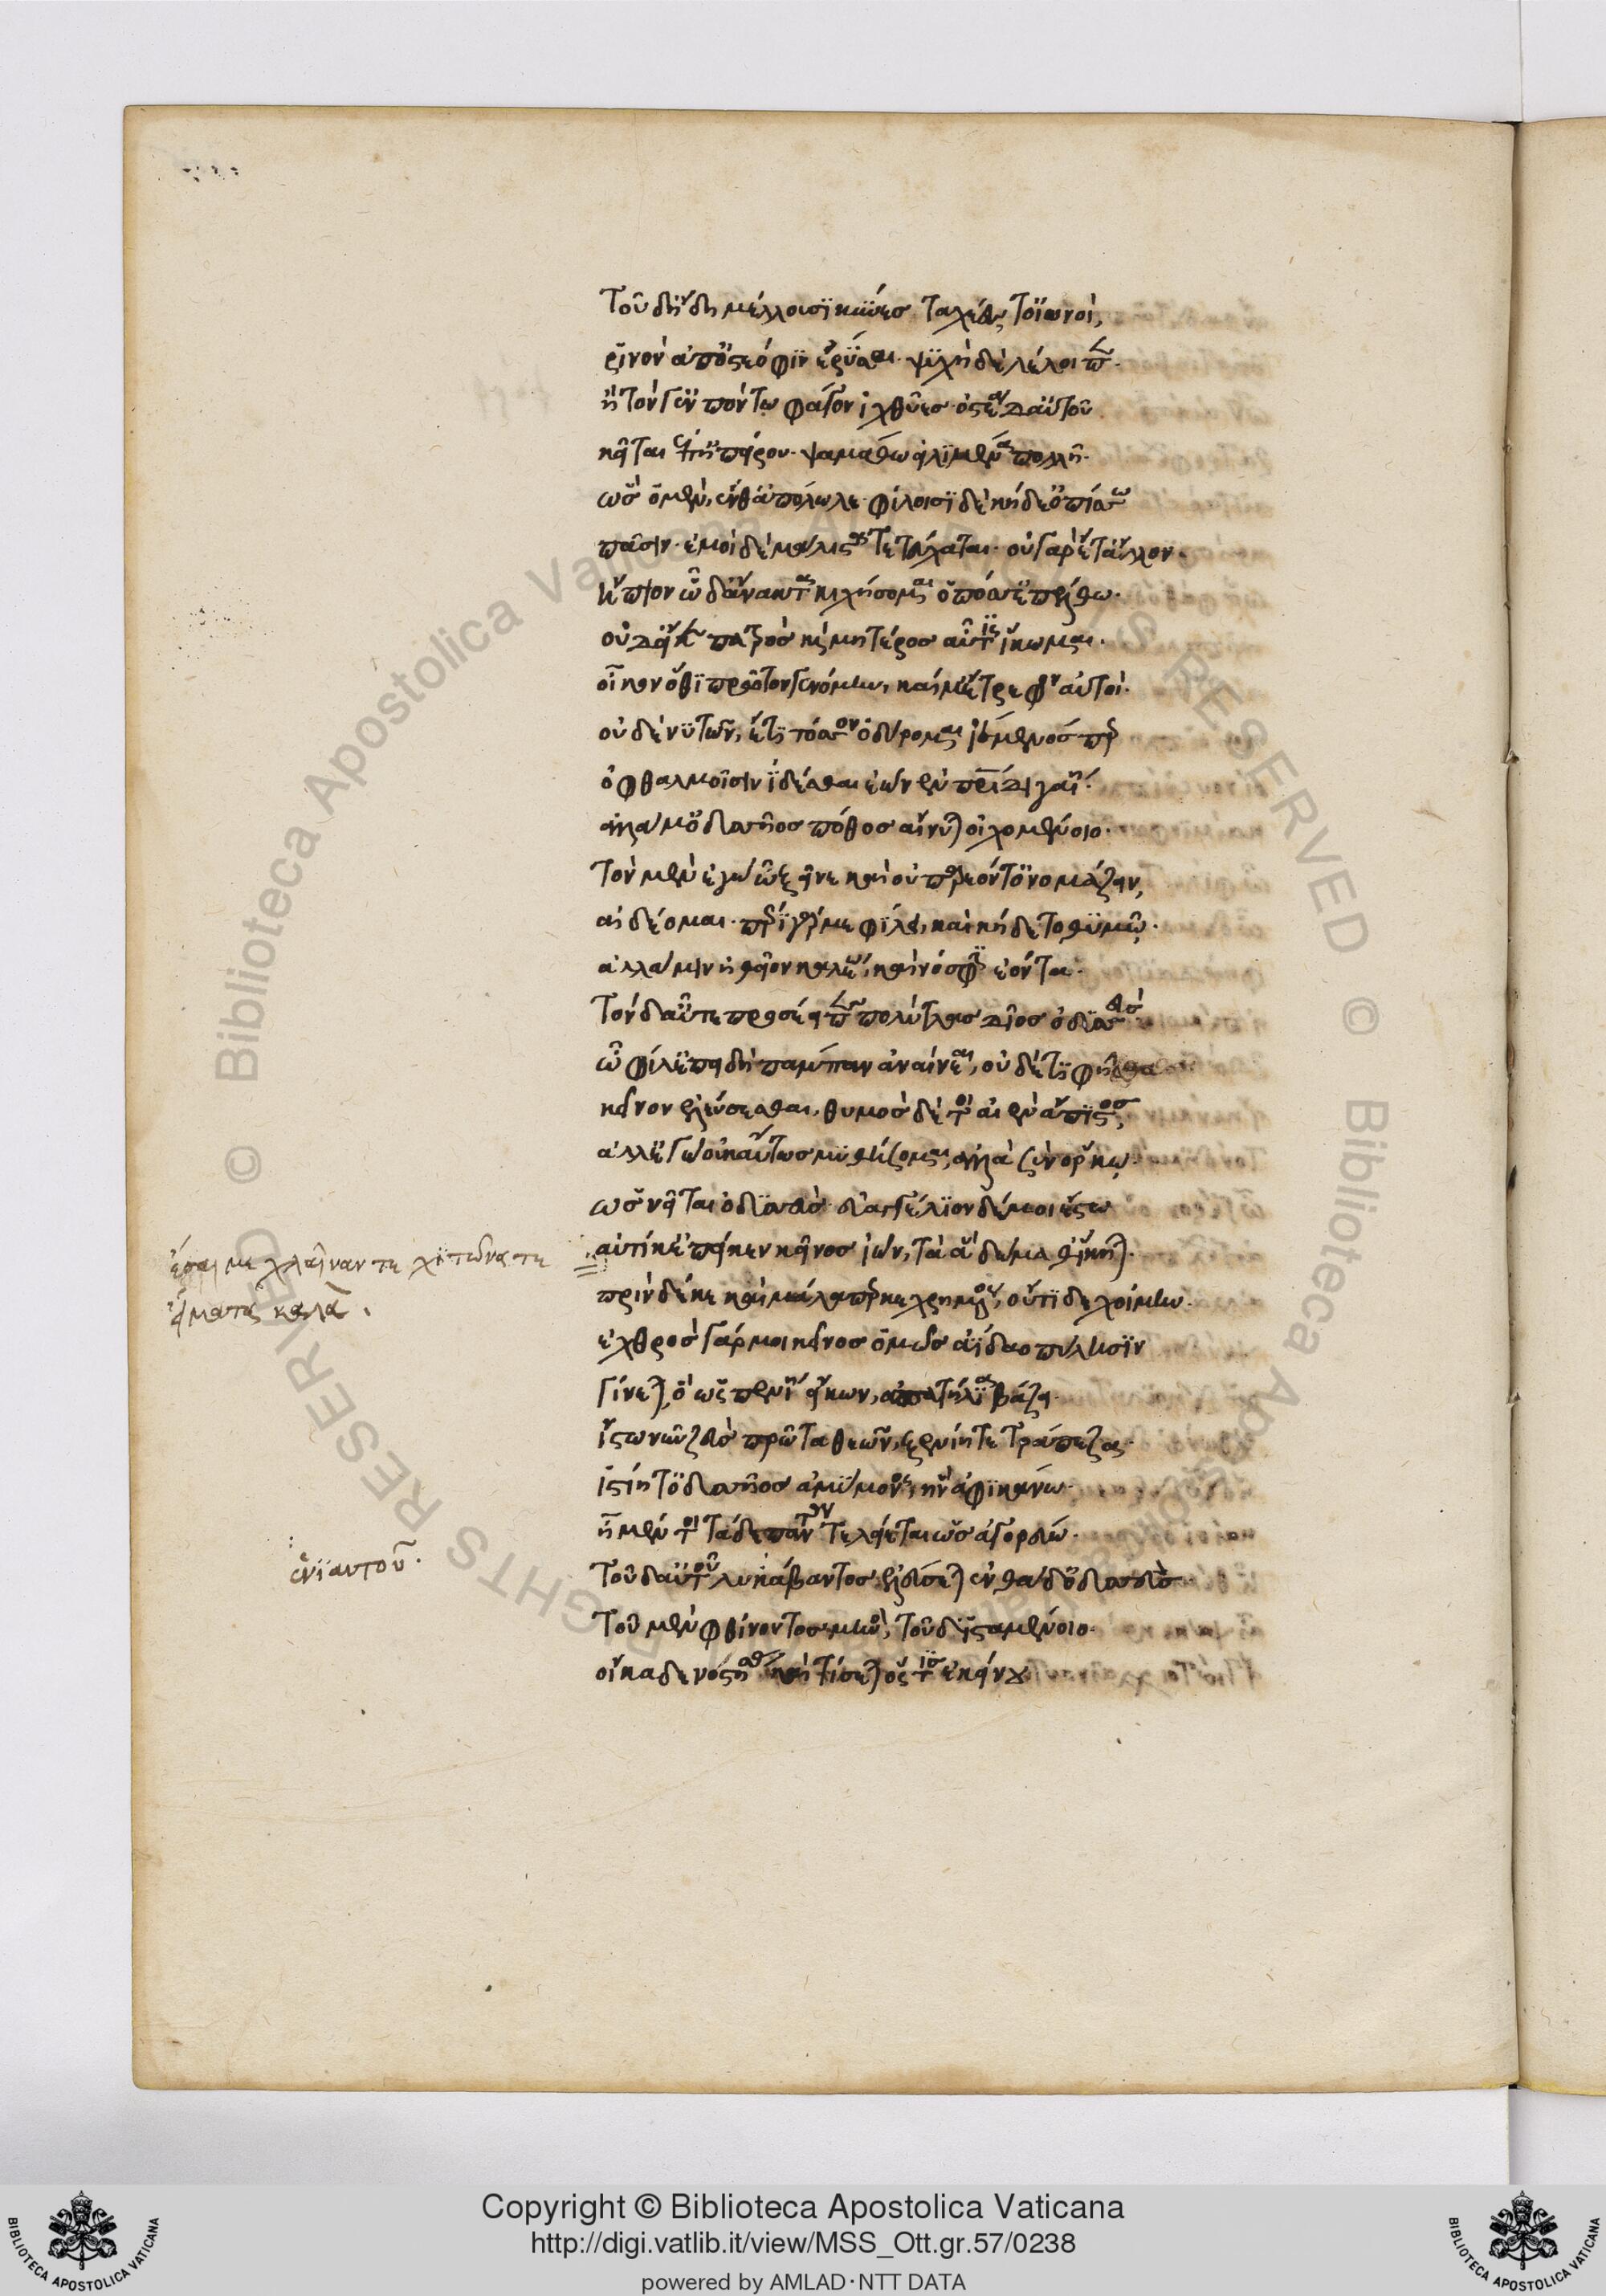 Τοῦ δ' ἤδη μέλλουσι κύνες ταχέες τ' οἰωνοὶ,
ῥινὸν ἀπ' ὀστεόφιν ἐρύσαι· ψυχὴ δὲ λέλοιπε·
ἢ τόν γ' ἐν πόντῳ φάγον ἰχθύες· ὀστέα δ' αὐτοῦ
κεῖται ἐπ' ἠπείρου· ψαμάθω εἰλυμένα πολλῇ·
ὣς ὃ μὲν, ἔνθ' ἀπόλωλε· φίλοισι δὲ κήδε' ὀπίσσω
πᾶσιν· ἐμοὶ δὲ μάλιστα τετεύχαται· οὐ γὰρ ἔτ' ἄλλον
ἤπιον ὧδ' ἄνακτα κιχήσομαι ὁππόσ' ἐπέλθω·
οὐδ' εἴ κε πατρὸς καὶ μητέρος αὖτις ἵκωμαι·
οἶκον ὅθι πρῶτον γενόμην, καί μ' ἔτρεφον αὐτοί·
οὐδέ νυ τῶν, ἔτι τόσσον ὀδύρομαι ἱέμενός περ
ὀφθαλμοῖσιν ἰδέσθαι ἐὼν ἐν πατρίδι γαίῃ·
ἀλλά μ' ὀδυσσῆος πόθος αἴνυται οἰχομένοιο·
τὸν μὲν ἐγὼν ὦ ξεῖνε καὶ οὐ παρεόντ' ὀνομάζειν,
αἰδέομαι· περὶ γάρ με φίλει, καὶ κήδετο θυμῷ·
ἀλλά μιν ἠθεῖον καλέω, καὶ νόσφιν ἐόντα·
Τὸν δ' αὖτε προσέειπε πολύτλας δῖος ὀδυσσεύς
ὦ φίλ' ἐπειδὴ πάμπαν ἀναίνεαι, οὐδέ τι φῇσθα
κεῖνον ἐλεύσεσθαι, θυμὸς δέ τοι αἰὲν ἄπιστος,
ἀλλ' ἐγὼ οὐκ αὔτως μυθήσομαι, ἀλλὰ σὺν ὅρκῳ·
ὡς νεῖται ὀδυσσεύς· εὐαγγέλιον δέ μοι ἔστω
αὐτίκ' ἐπεί κεν κεῖνος ἰὼν, τὰ ἃ δώμαθ' ἵκηται·
ἕσαι με χλαῖναν τε χιτῶνα τε
εἵματα καλὰ.
πρὶν δέ κε καὶ μάλα περ κεχρημένος, οὔτι δεχοίμην·
ἐχθρὸς γάρ μοι κεῖνος ὁμῶς ἀΐδαο πύλησιν
γίνεται, ὃς πενίῃ εἴκων, ἀπατήλια βάζει·
ἴστω νῦν ζεὺς πρῶτα θεῶν, ξενίη τε τράπεζα·
ἱστίη τ' ὀδυσσῆος ἀμύμονος, ἣν ἀφικάνω·
ἦ μέν τοι τάδε πάντα τελείεται ὡς ἀγορεύω·
ἐνιαυτοῦ·
Τοῦδ' αὐτοῦ λυκάβαντος ἐλεύσεται ἐνθάδ' ὀδυσσεὺς·
Τοῦ μὲν φθίνοντος μηνὸς, τοῦ δ' ἱσταμένοιο·
οἴκαδε νοστήσει, καὶ τίσεται ὅς τις ἐκείνου